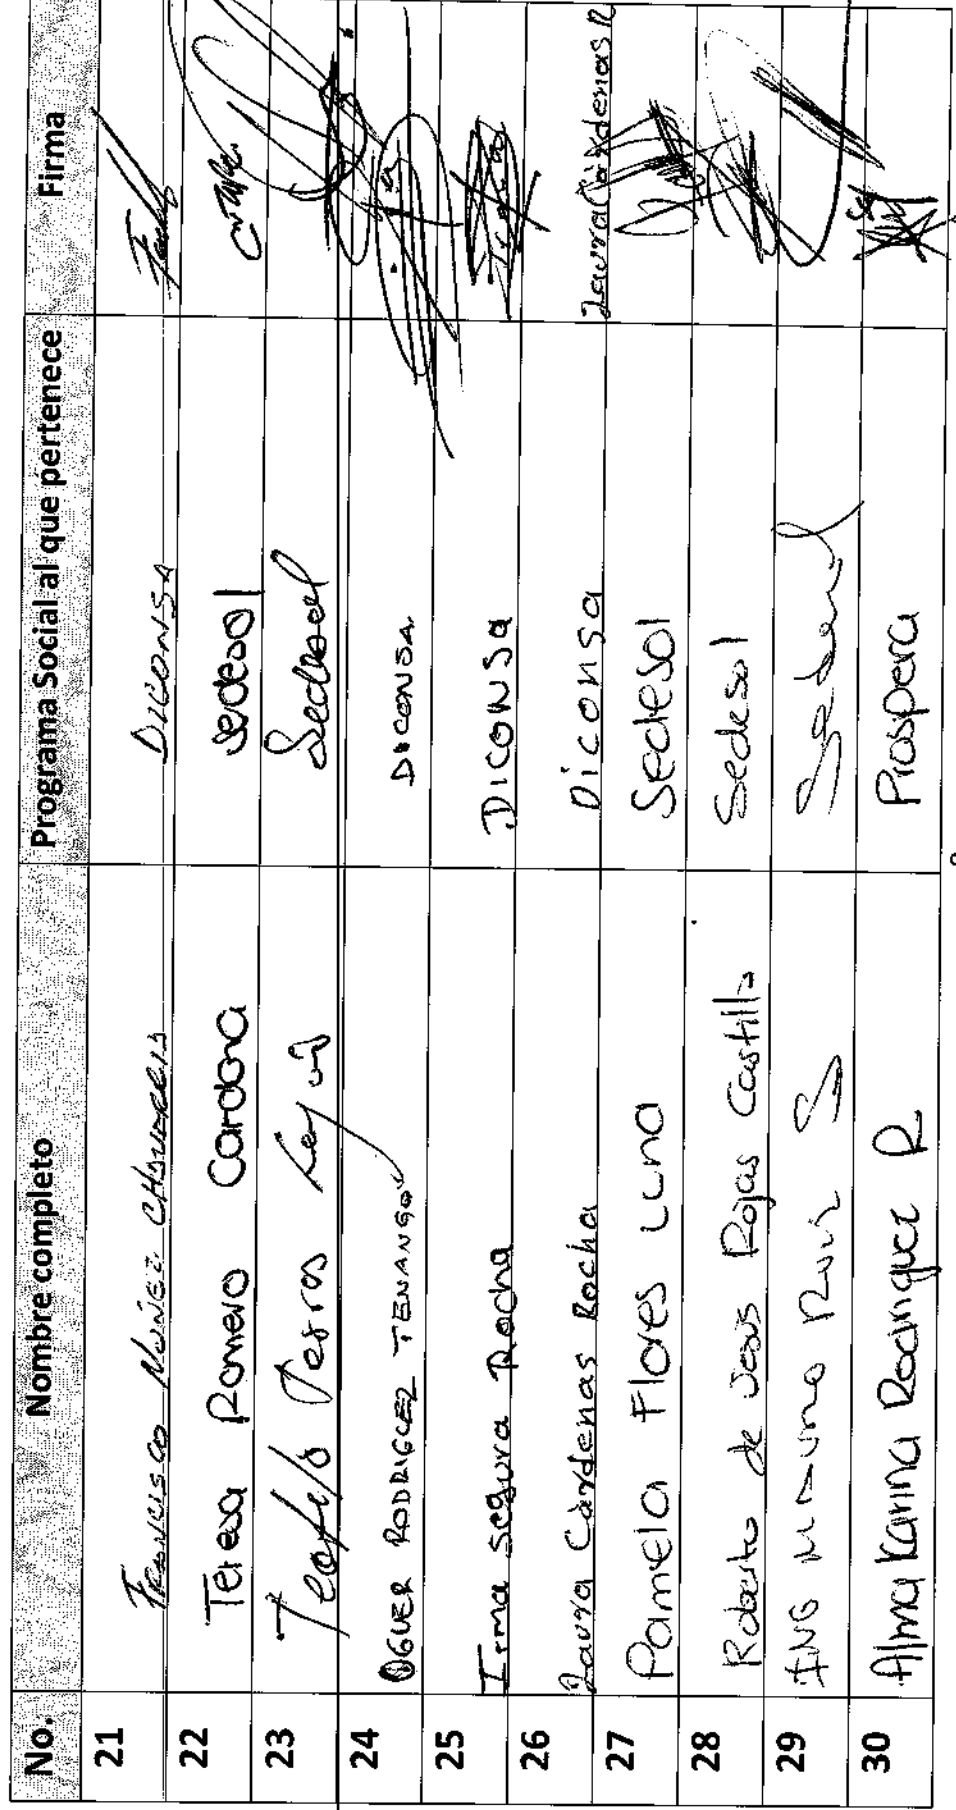 No. Nombre completo Programa Social al que pertenece Firma
21 Francisco Nuñez DICONSA
22 Teresa Romero Cardona sedesol
23 Teofilo Sedesol
24 OGUER RODRIGUEZ TENANGO DICONSA
25 Irma segura Rocha DICONSA
26 Laura Cárdenas Rocha Diconsa Laura Cárdenas R
27 Pamela Flores Luna Sedesol
28 Roberto de Jesus Rojas Castillo Sedesol
29 ING Ruiz S
30 Alma Karina Rodriguez R Prospera